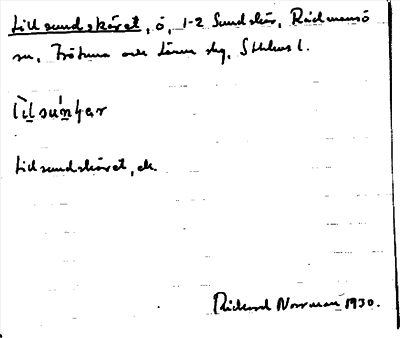 Lillsundskäret, ö, 1-2 Sundskär, Rådmansö
sn, Frötuna och Länna skg, Sthlms l.
Lillsundskäret, ek.
Rickard Norrman 1930.